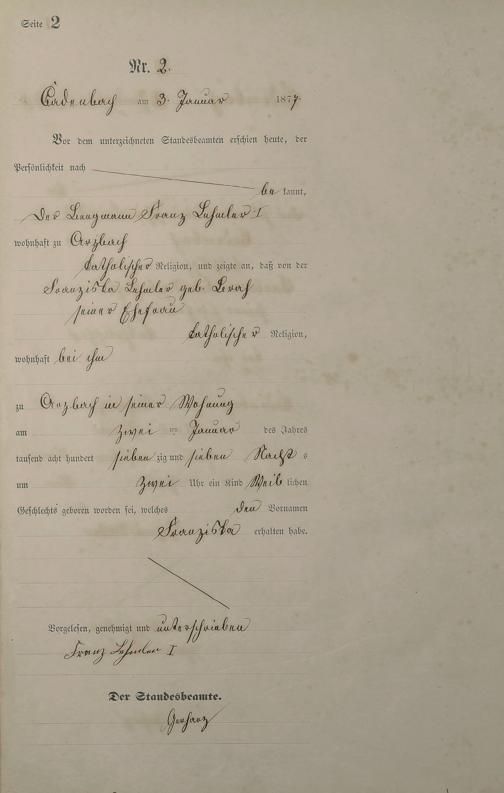 Seite 2
Nr. 2.
Cadenbach am 3. Januar 1877
Vor dem unterzeichneten Standesbeamten erschien heute, der
Persönlichkeit nach
be kannt,
Der Bergmann Franz Lehmler I
wohnhaft zu Arzbach
katholischer Religion, und zeigte an, daß von der
Franziska Lehmler geb.
seiner Ehefrau
katholischer Religion,
wohnhaft bei ihm
zu Arzbach in seiner Wohnung
am zwei ten Januar des Jahres
tausend acht hundert sieben zig und sieben Nachts
um zwei Uhr ein Kind Weib lichen
Geschlechts geboren worden sei, welches den Vornamen
Franziska erhalten habe.
Vorgelesen, genehmigt und unterschrieben
Franz Lehmler I
Der Standesbeamte.
Gerharz